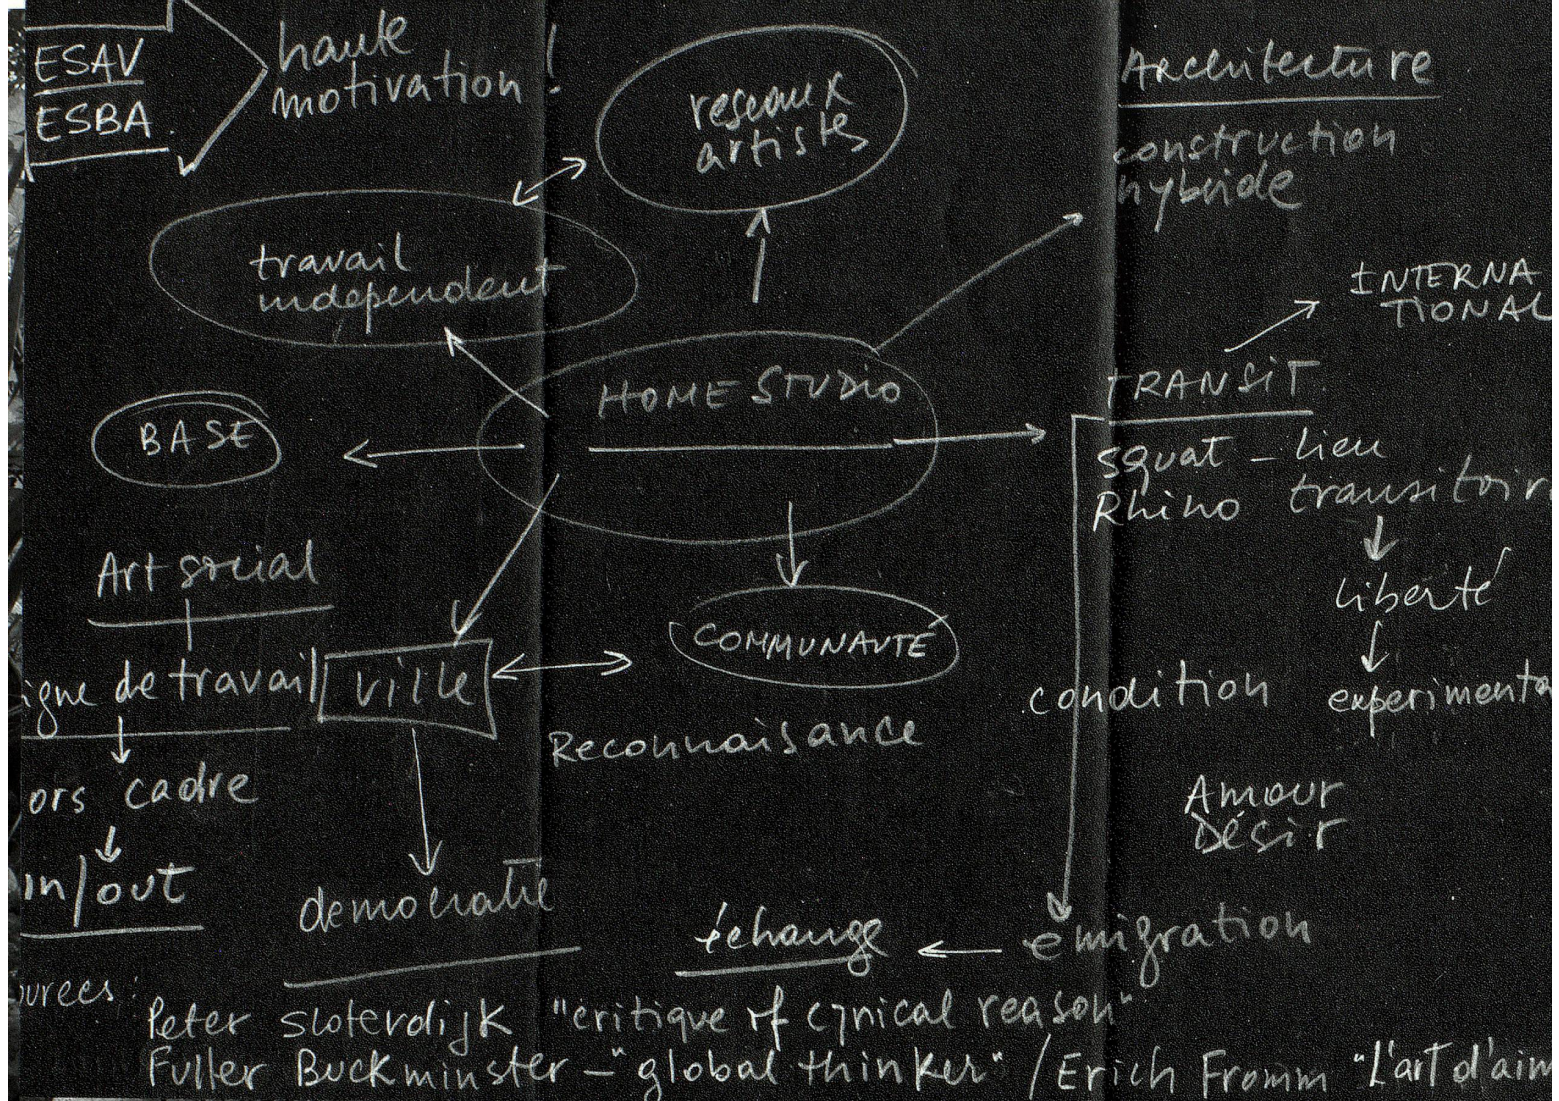 ESAV
ESBA
haute
motivation !
reseaux
artistes
Architecture
construction
hybride
travail
independent
INTERNA
TIONAL
HOME STUDIO
TRANSIT
BASE
squat - lieu
Rhino transitoire
liberté
experimenta
Art social
igne de travail
ors cadre
in/out
ville
COMMUNAUTÉ
Reconnaisance
condition
Amour
Désir
democratie
échange
emigration
ources:
Peter sloterdijk "critique of cynical reason"
Fuller Buckminster - "global thinker" / Erich Fromm "L'art d'aim